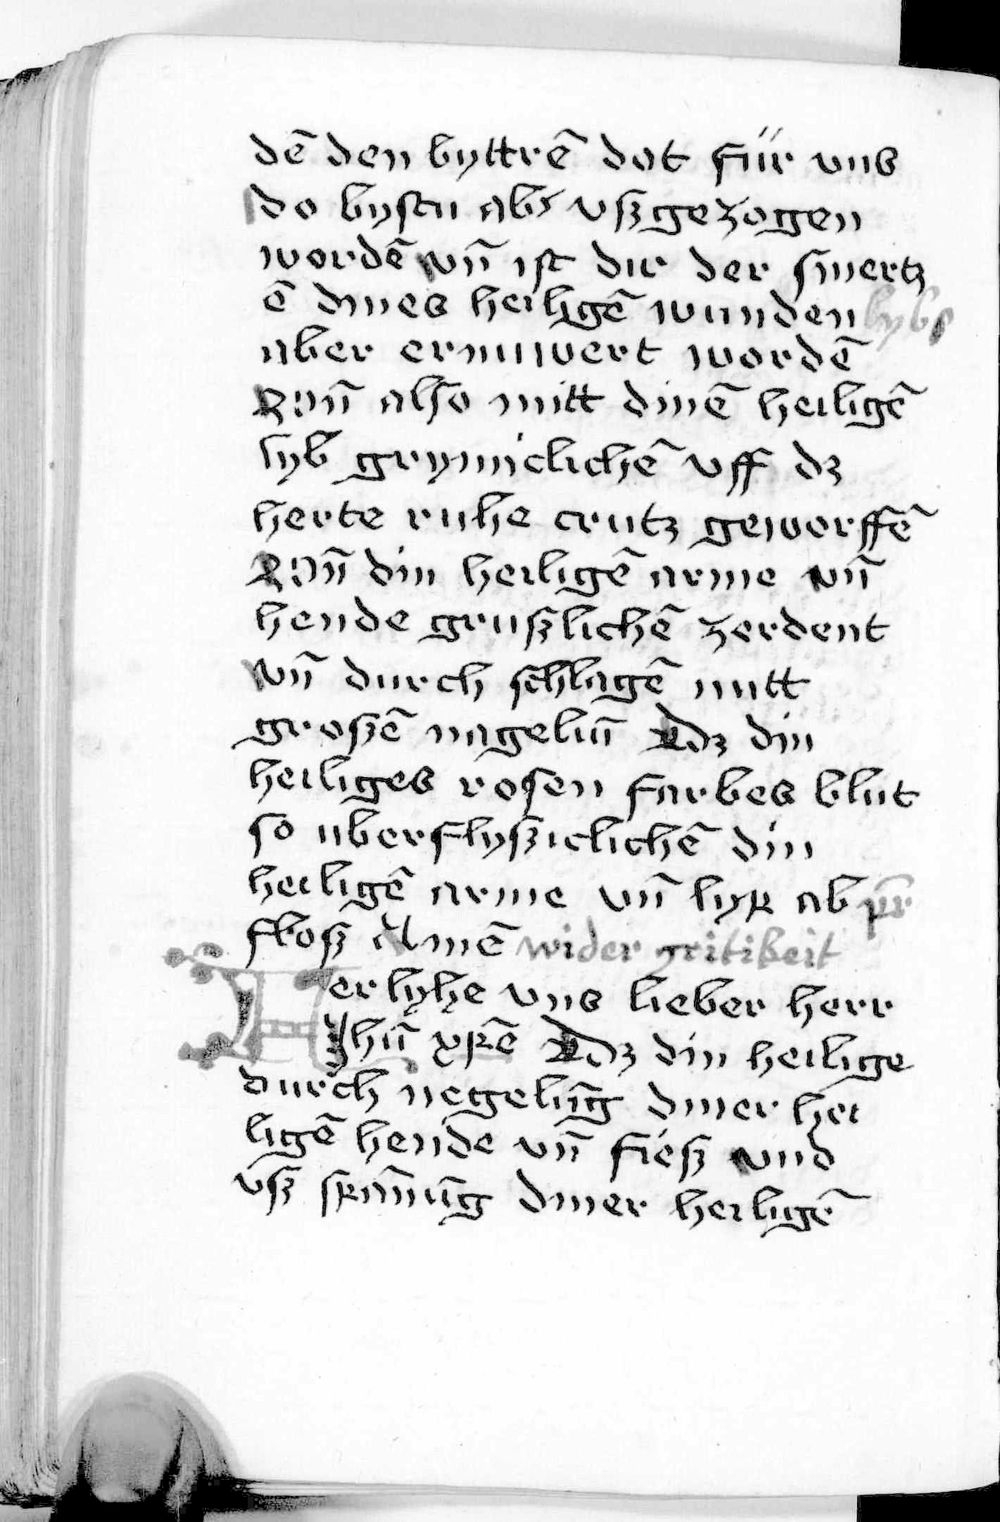 dē den byttrē dot für vns
do bystu abs vsz gezogen
wordē vn̄ ist dir der smertz
ē dines heiligē wunden lybs
aber ernuwert wordē
Vn̄ also mitt dinē heiligē
lyb grymiclichē vff dz
herte ruhe crutz geworffē
Vn̄ din heiligē arme vn̄
hende gruszlichē zerdent
vn̄ durch schlagē mitt
groszē nagelin̄ Ddz din
heiliges rosen farbes blut
so uberflysziclichē din
heiligē arme vn̄ lyp ab
flosz Amē wider gritikeit
Herlyhe vns lieber herr
Jhū xp̄ē Ddz din heilige
durch negelūg diner hei
ligē hende vn̄ fiesz vnd
vsz span̄ūg diner heiligē